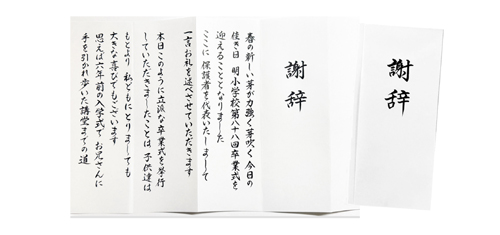 謝辞
謝辞
春の新しい芽が力強く芽吹く今日の
佳き日 明小学校第八十八回卒業式を
迎えることとなりました
ここに 保護者を代表いたしまして
一言お礼を述べさせていただきます
本日このように立派な卒業式を挙行
していただきましたことは 子供達は
もとより 私どもにとりましても
大きな喜びでもございます
思えば六年前の入学式で お兄さんに
手を引かれ歩いた講堂までの道